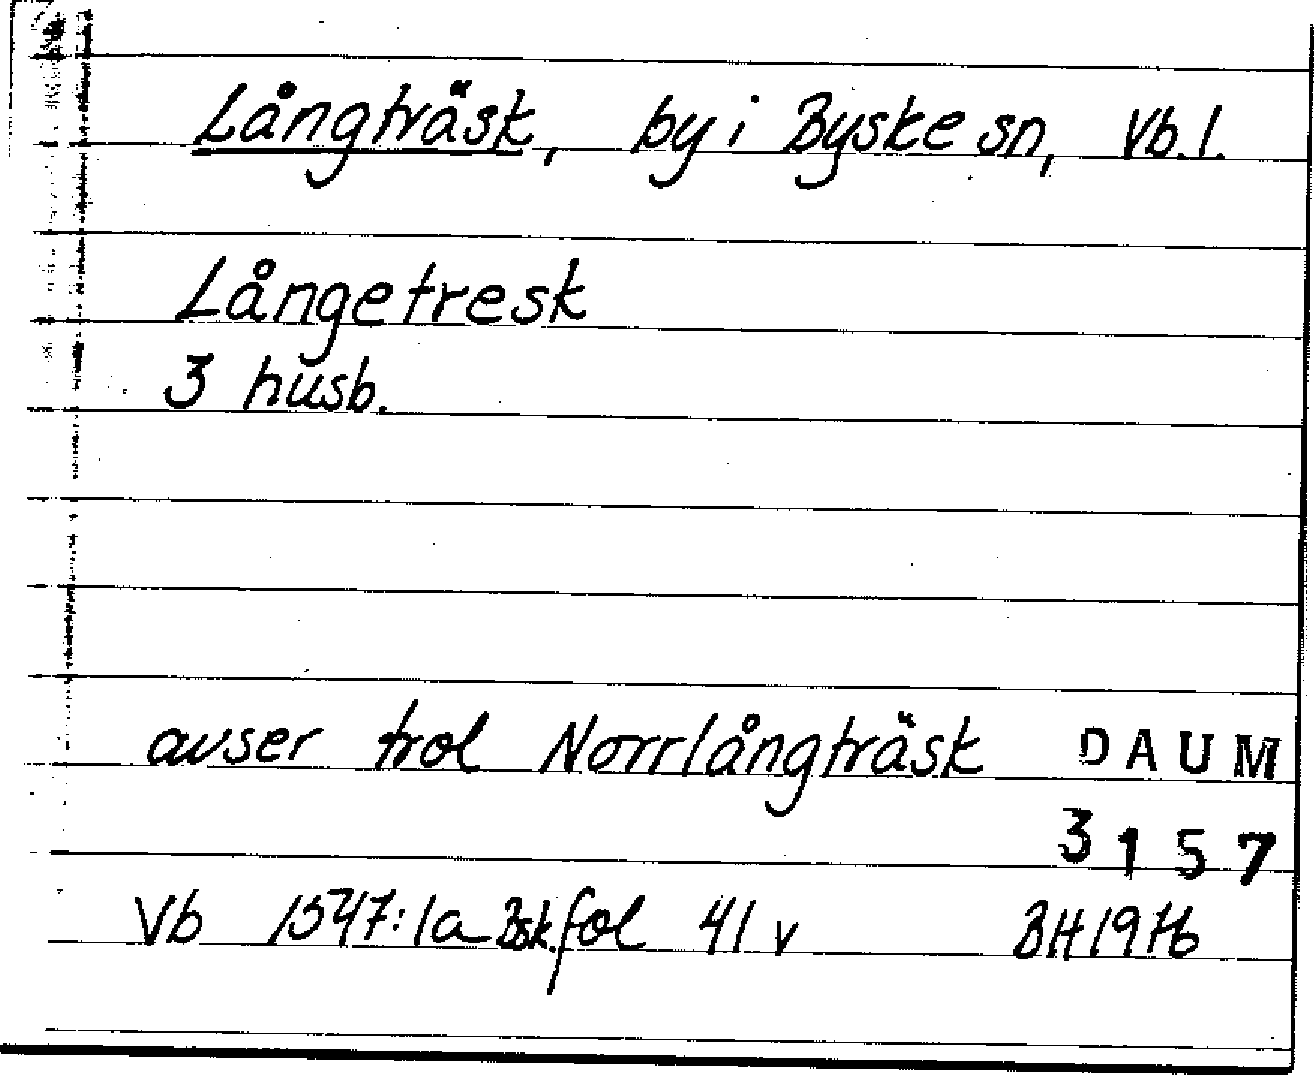 Långträsk, by i Byske sn, Vb. l.
Långetresk
3 husb.
avser trol Norrlångträsk DAUM
3157
Vb 1547:1a Bsk. fol 41 v BH 1976